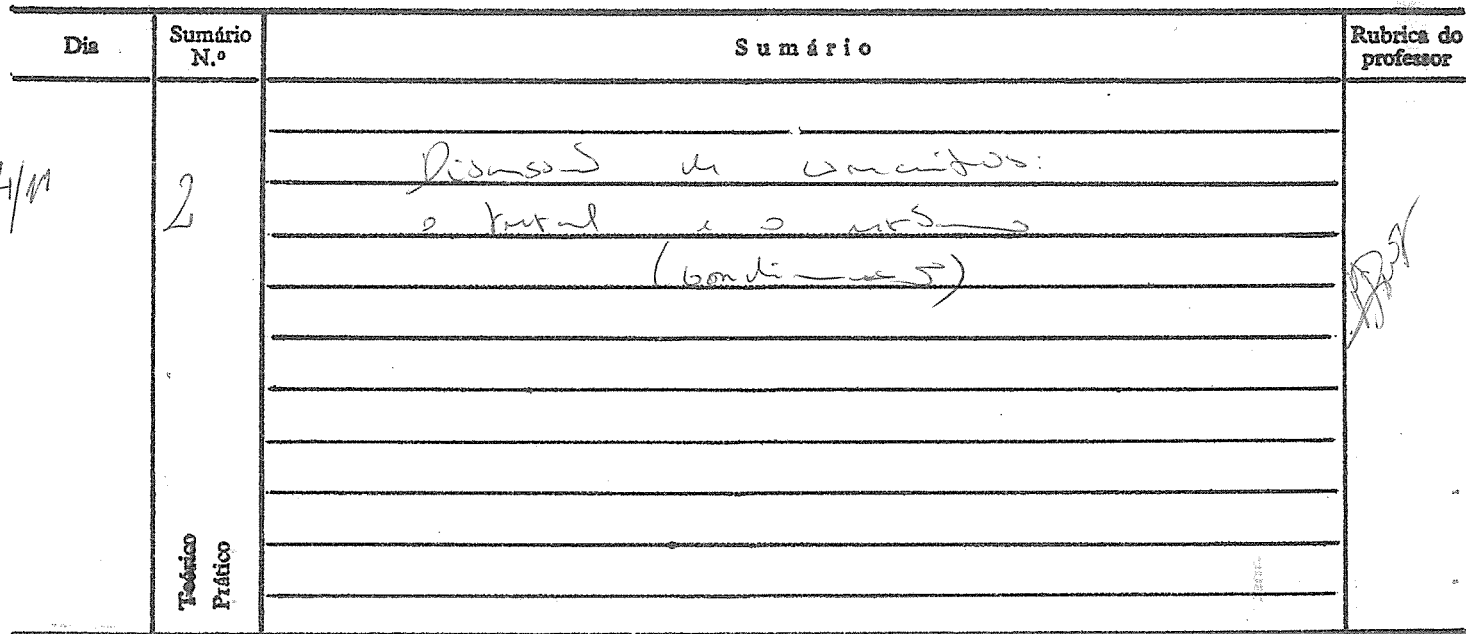 Dia
Sumário N.º
Sumário
Rubrica do professor
4/11
2
Discussão de conceitos:
o e o
(continuação)
Teórico
Prático